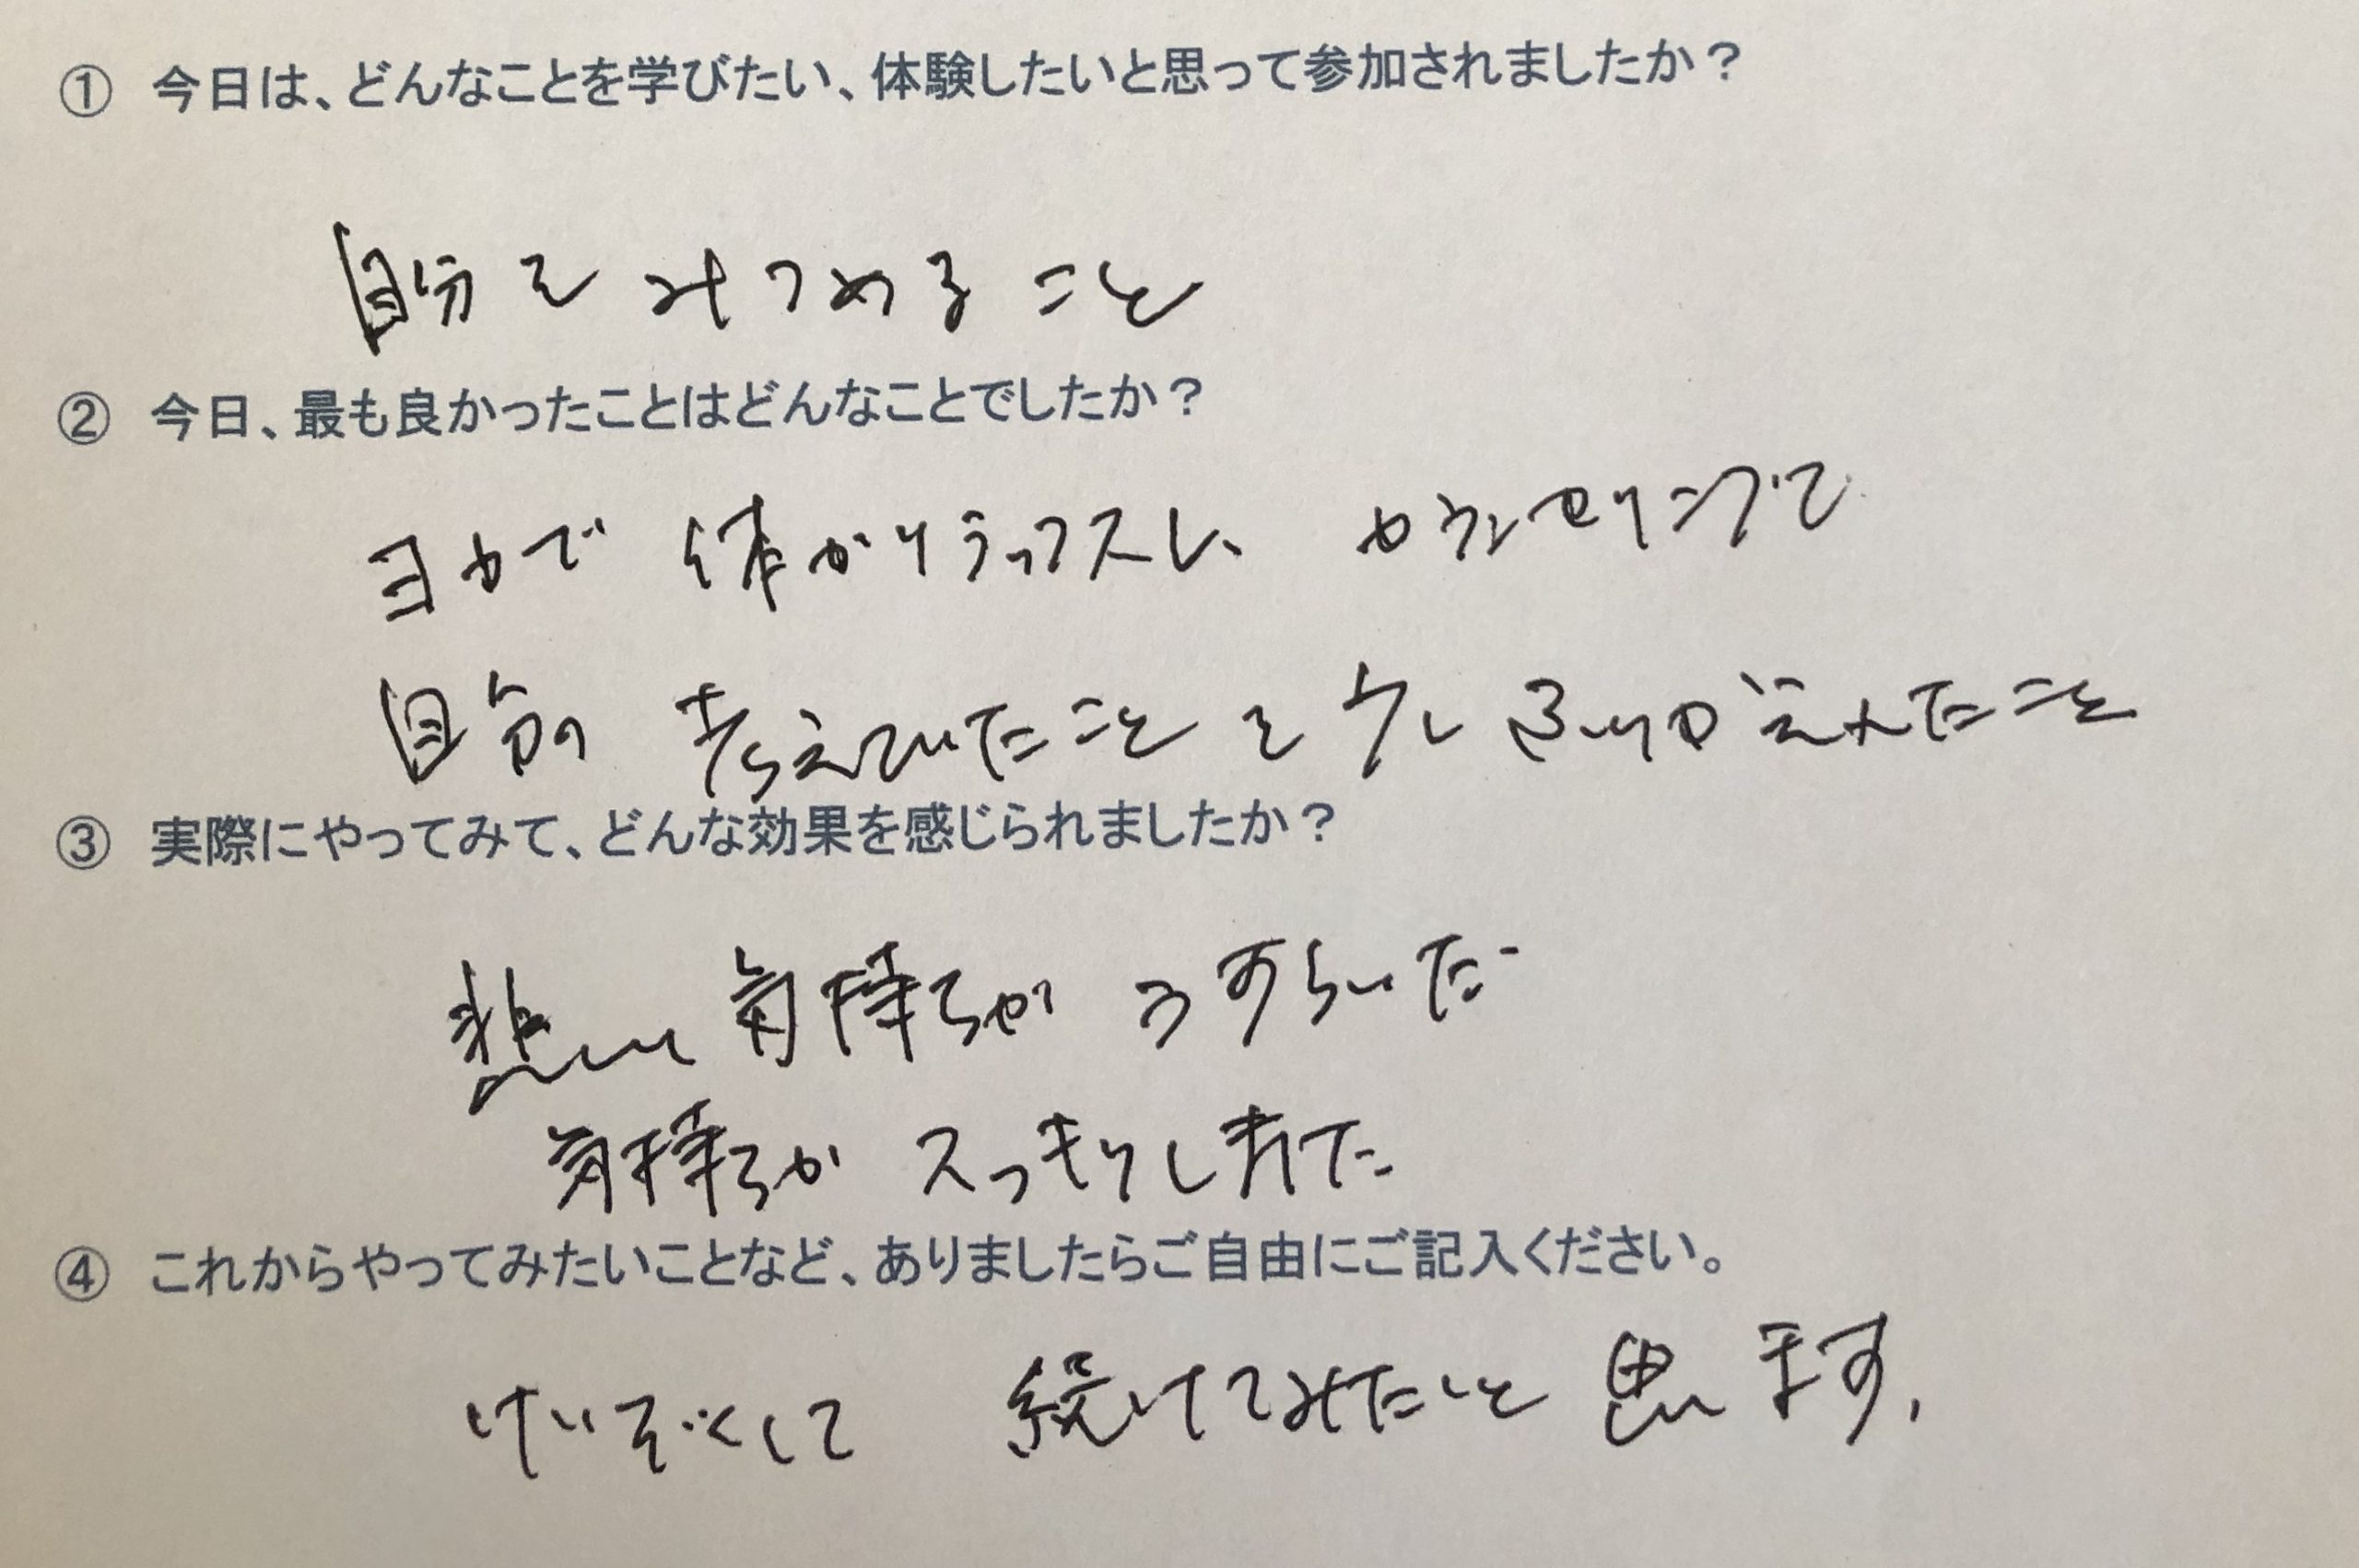 ① 今日は、どんなことを学びたい、体験したいと思って参加されましたか？
自分をみつめること
② 今日、最も良かったことはどんなことでしたか？
ヨガで 体がリラックスし、カウンセリングで
自分の 考えていたことを少しふりかえれたこと
③ 実際にやってみて、どんな効果を感じられましたか？
悲しい気持ちが うすらいだ
気持ちが スッキリしました
④ これからやってみたいことなど、ありましたらご自由にご記入ください。
けいぞくして 続けてみたいと思います。